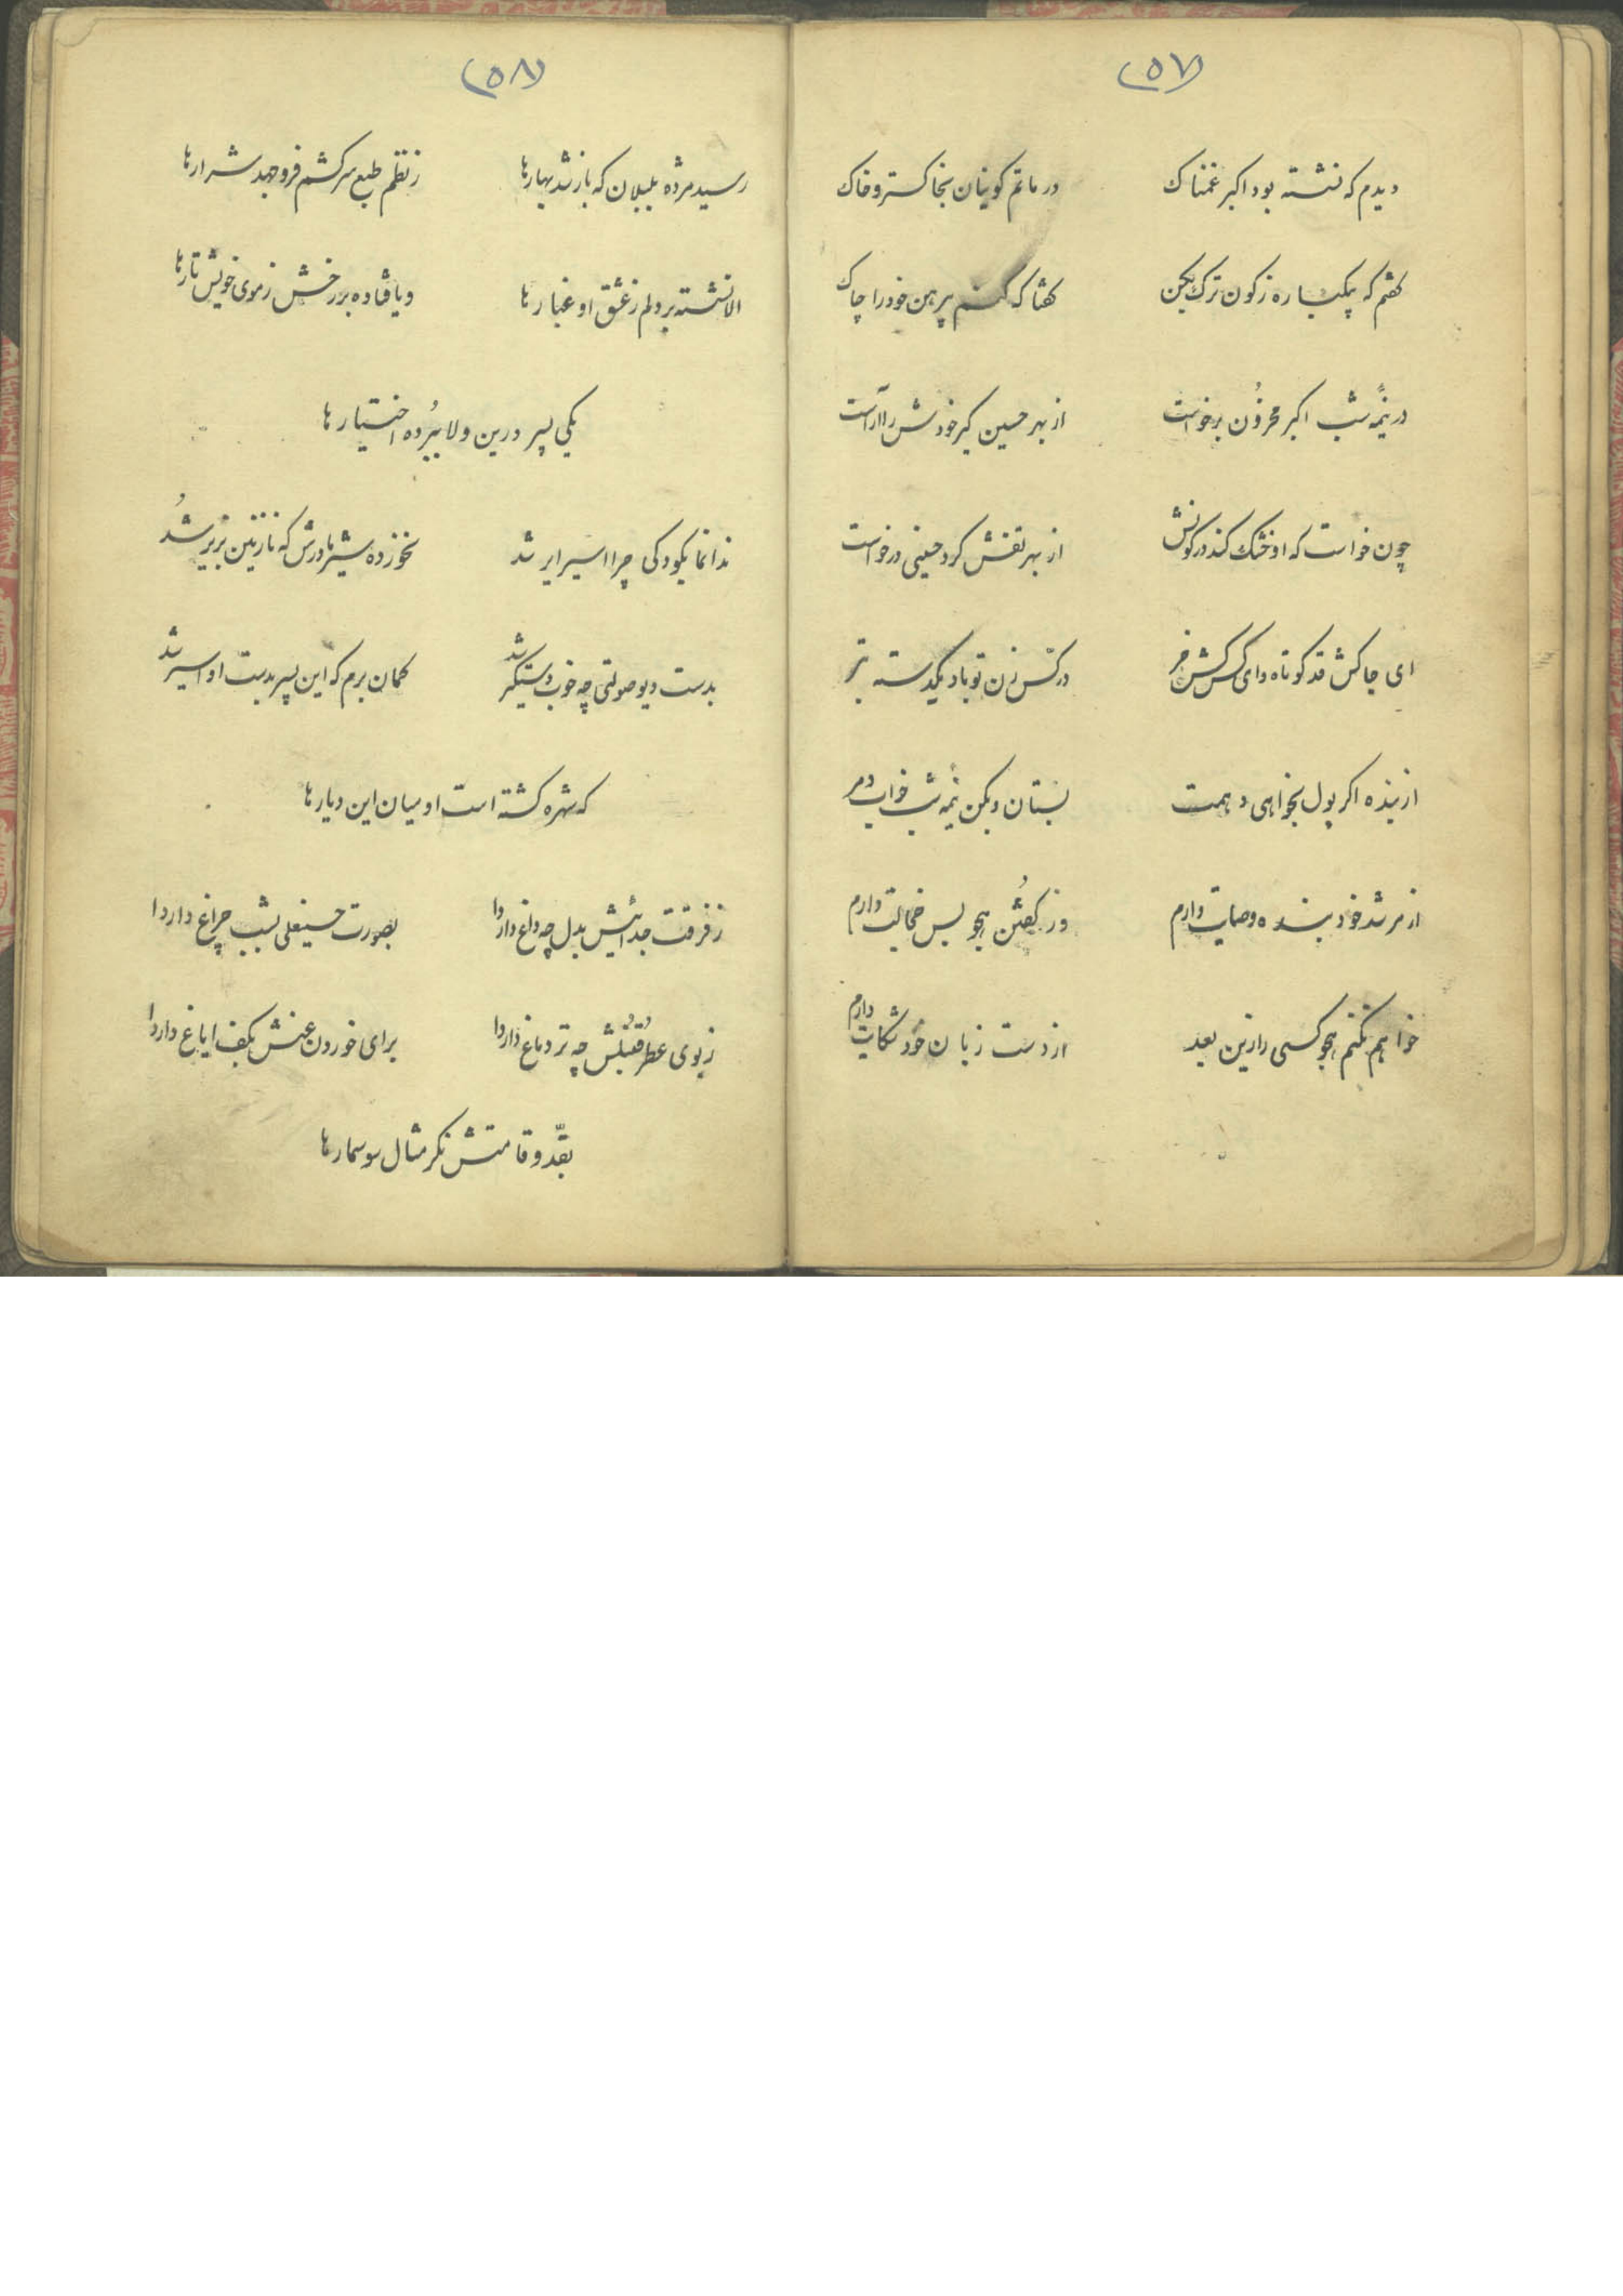 (۵۷)
دیدم که نشسته بود اکبر غمناک
در ماتم کونیان بخاکستر و خاک
گفتم که یکباره ز کون ترک بکن
گفتا که کنم پیرهن خود را چاک
در نیمه شب اکبر محزون برخواست
از بهر حسین کیر خودش را آراست
چون خواست که او خشک کند در کونش
از بهر تفش کرد حسینی درخواست
ای جاکش قد کوتاه وای کس کش خر
در کس زن تو باد یکدسته تبر
از بنده اکر پول بخواهی دهمت
بستان و بکن نیمه شب خواب دمر
از مرشد خود بنده وصایت دارم
وز گفتن هجو بس خجالت دارم
خواهم نکنم هجو کسی را زین بعد
از دست زبان خود شکایت دارم
(۵۸)
رسید مژده بلبلان که باز شد بهارها
ز نظم طبع سرکشم فرو جهد شرارها
الا نشسته بر دلم ز عشق او غبارها
و یا فتاده بر رخش ز موی خویش تارها
یکی پسر درین ولا ببرده اختیارها
ندانما یکودکی چرا اسیر ایر شد
نخورده شیر مادرش که نازنین بزیر شد
بدست دیو صولتی چه خوب دستگیر شد
گمان برم که این پسر بدست او اسیر شد
که شهره کشته است او میان این دیارها
ز فرقت جدائیش بدل چه داغ داردا
بصورت حسینعلی بشب چراغ داردا
ز بوی عطر قنبلش چه تر دماغ داردا
برای خوردن عنش بکف ایاغ داردا
بقدّ و قامتش نکر مثال سوسمارها